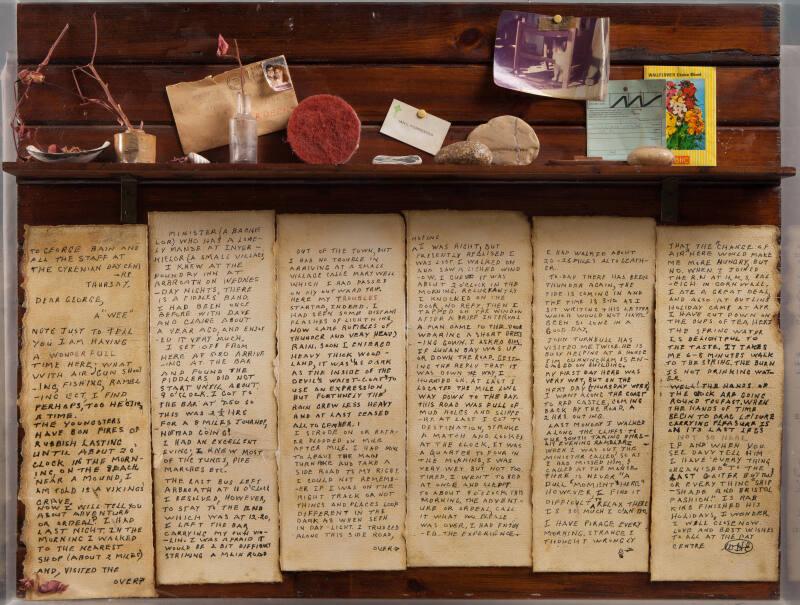 WALLFLOWER
TO GEORGE BAIN AND
ALL THE STAFF AT
THE CYRENIAN DAY CENT
-RE
THURSDAY.
DEAR GEORGE,
A "WEE"
NOTE JUST TO TELL
YOU I AM HAVING
A WONDERFULL
TIME HERE; WHAT
WITH AIR-GUN SHOOT
-ING, FISHING, RAMBL
-ING ECT, I FIND
PERHAPS, TOO
A TIME.
THE YOUNGSTERS
HAVE BON FIRES OF
RUBBISH LASTING
UNTIL ABOUT 20
CLOCK IN THE MORN-
ING, ON THE BEACH
NEAR A MOUND, I
AM TOLD IS A VIKINGS
GRAVE.
NOW I WILL TELL YOU
ABOUT ADVENTURE
OR ORDEAL? I HAD
LAST NIGHT IN THE
MORNING I WALKED
TO THE NEAREST
SHOP (ABOUT 2 MILES)
AND, VISITED THE
OVER
MINISTER (A BACHE
LOR) WHO HAS A LONE-
LY MANSE AT INVER-
KIELOR (A SMALL VILLAGE)
I KNEW AT THE
FOUNDRY INN AT
ARBROATH ON WEDNES
-DAY NIGHTS, THERE
IS A FIDDLERS BAND,
I HAD BEEN ONCE
BEFORE WITH DAVE
AND CLAIRE ABOUT
A YEAR AGO, AND ENJOY
ED IT VERY MUCH.
I SET OFF FROM
HERE AT 5.20 ARRIVE
-ING AT THE BAR
AND FOUND THE
FIDDLERS DID NOT
START UNTIL ABOUT
9 O'CLOCK. I GOT TO
THE BAR AT 7.50 SO
THIS WAS 2½ HRS
FOR A 8 MILES JOURNEY,
NOT BAD GOING!
I HAD AN EXCELLENT
EVENING, I KNEW MOST
OF THE TUNES, PIPE
MARCHES ETC.
THE LAST BUS LEFT
ARBROATH AT 11 O'CLOCK
I DESIDED, HOWEVER,
TO STAY TO THE END
WHICH WAS AT 12.20,
I LEFT THE BAR
CARRYING MY
I WAS AFRAID IT
WOULD BE A BIT DIFFICULT
STRIKING A MAIN ROAD
OUT OF THE TOWN, BUT
I HAD NO TROUBLE IN
ARRIVING AT A SMALL
VILLAGE CALLED MARYWELL
WHICH I HAD PASSED
ON MY OUTWARD TRIP.
HERE MY TROUBLES
STARTED, INDEED. I
HAD SEEN SOME DISTANT
FLASHES OF LIGHTNING,
NOW CAME RUMBLES OF
THUNDER AND VERY HEAVY
RAIN. SOON I ENTERED
HEAVY THICK WOOD-
LAND, IT WAS AS DARK
AS THE INSIDE OF THE
DEVIL'S WAIST-COAT TO
USE AN EXPRESSION,
BUT FORTUNELY THE
RAIN GREW LESS HEAVY
AND AT LAST CEASED
ALLTOGETHER.
I STRODE ON OR RATH-
ER PLODDED ON MILE
AFTER MILE. I HAD NOW
TO LEAVE THE MAIN
TURNPIKE AND TAKE A
SIDE ROAD TO MY RIGHT.
I COULD NOT REMEMB-
ER IF I WAS ON THE
RIGHT TRACK OR NOT
THINGS AND PLACES LOOK
DIFFERENT IN THE
DARK AS WHEN SEEN
IN DAY-LIGHT. I TRUDGED
ALONG THIS SIDE ROAD,
OVER
HOPING
I WAS RIGHT, BUT
PRESENTLY REALISED I
WAS LOST. I WALKED ON
AND SAW A LIGHTED WIND
-OW, I GUESS IT WAS
ABOUT 3 O'CLOCK IN THE
MORNING. RELUCTANTLY
I KNOCKED ON THE
DOOR, NO REPLY, THEN I
TAPPED ON THE WINDOW
AFTER A BRIEF INTERVAL
A MAN CAME TO THE DOOR
WEARING A SHORT DRESS
-ING GOWN, I ASKED HIM
IF LUNAN BAY WAS UP
OR DOWN THE ROAD,
-ING THE REPLY THAT IT
WAS DOWN THE WAY I
HURRIED ON. AT LAST I
LOCATED THE MILE LONG
WAY DOWN TO THE BAY.
THIS ROAD WAS FULL OF
MUD HOLES AND
-RY AT LAST I GOT TO
DESTINATION, STRUCK
A MATCH AND LOOKED
AT THE CLOCK, IT WAS
A QUARTER TO FOUR IN
THE MORNING, I WAS
VERY WET BUT NOT TOO
TIRED, I WENT TO BED
AT ONCE AND SLEPT
TO ABOUT 9 O'CLOCK THIS
MORNING. THE ADVENT-
URE OR ORDEAL, CALL
IT WHAT YOU
WAS OVER, I HAD ENJOY
-ED THE EXPERIENCE.
I HAD WALKED ABOUT
20-25 MILES ALTOGETH-
ER.
TO-DAY THERE HAS BEEN
THUNDER AGAIN, THE
TIDE IS COMING IN AND
THE TIME IS 3 AND AS I
SIT WRITING THIS LETTER
WHICH WOULD NOT HAVE
BEEN SO LONG IN A
GOOD DAY.
JOHN TURNBULL HAS
VISITED ME TWICE HE IS
BUSY HELPING AT A HOUSE
JIM CUNNINGHAM IS EN-
GAGED ON BUILDING.
MY FIRST DAY HERE WAS
VERY WET, BUT ON THE
NEXT DAY (THURSDAY WEEK)
I WENT ALONG THE COAST
TO RED CASTLE, COMING
BACK BY THE ROAD, A
2 HRS OUTING.
LAST MONDAY I WALKED
ALONG THE CLIFFS IN
WHEN I WAS OUT THE
MINISTER CALLED, SO AS
I HAD MISSED HIM, I
CALLED AT THE MANSE.
THERE IS NEVER A
DULL "MOMENT" HERE!
HOWEVER I FIND IT
DIFFICULT TO RELAX THERE
IS SO MUCH I CAN DO.
I HAVE PIRAGE EVERY
MORNING, STRANGE I
THOUGHT WRONGLY
THAT THE CHANGE OF
AIR HERE WOULD MAKE
ME MORE HUNGRY, BUT
NO. WHEN I JOINED
THE R.N AT H.M.S RAL-
EIGH IN CORNWALL.
I ATE A GREAT DEAL
AND ALSO AT BUTLINS
HOLIDAY CAMP AT AYR
I HAVE CUT DOWN ON
THE CUPS OF TEA, HERE
THE SPRING WATER
IS DELIGHTFUL TO
THE TASTE, IT TAKES
ME 6-8 MINUTES WALK
TO THE SPRING. THE BURN
IS NOT DRINKING WAT-
ER.
WELL! THE HANDS OF
THE CLOCK ARE GOING
ROUND TOO FAST, WHEN
THE HANDS OF TIME
BEGIN TO DRAG, LEISURE
CARRYING PLEASURE IS
ON ITS LAST LEGS
NOT SO HERE.
IF AND WHEN YOU
SEE DAVY TELL HIM
I HAVE "EVERY THING
ORGANISED" TO THE
LAST GAITER BUTTON
OR EVERYTHING "SHIP
SHAPE AND BRISTOL
FASHION." IS MRS
KIRK FINISHED HIS
HOLIDAYS, I WONDER.
I WILL CLOSE NOW.
LOVE AND BEST WISHES
TO ALL AT THE DAY
CENTRE